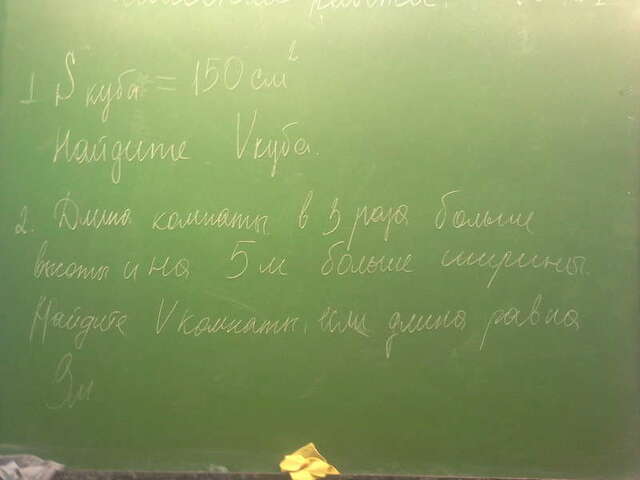 работа.
1 S куба = 150 см²
Найдите V куба.
2. Длина комнаты в 3 раза больше
высоты и на 5 м больше ширины.
Найдите V комнаты, если длина равна
9м